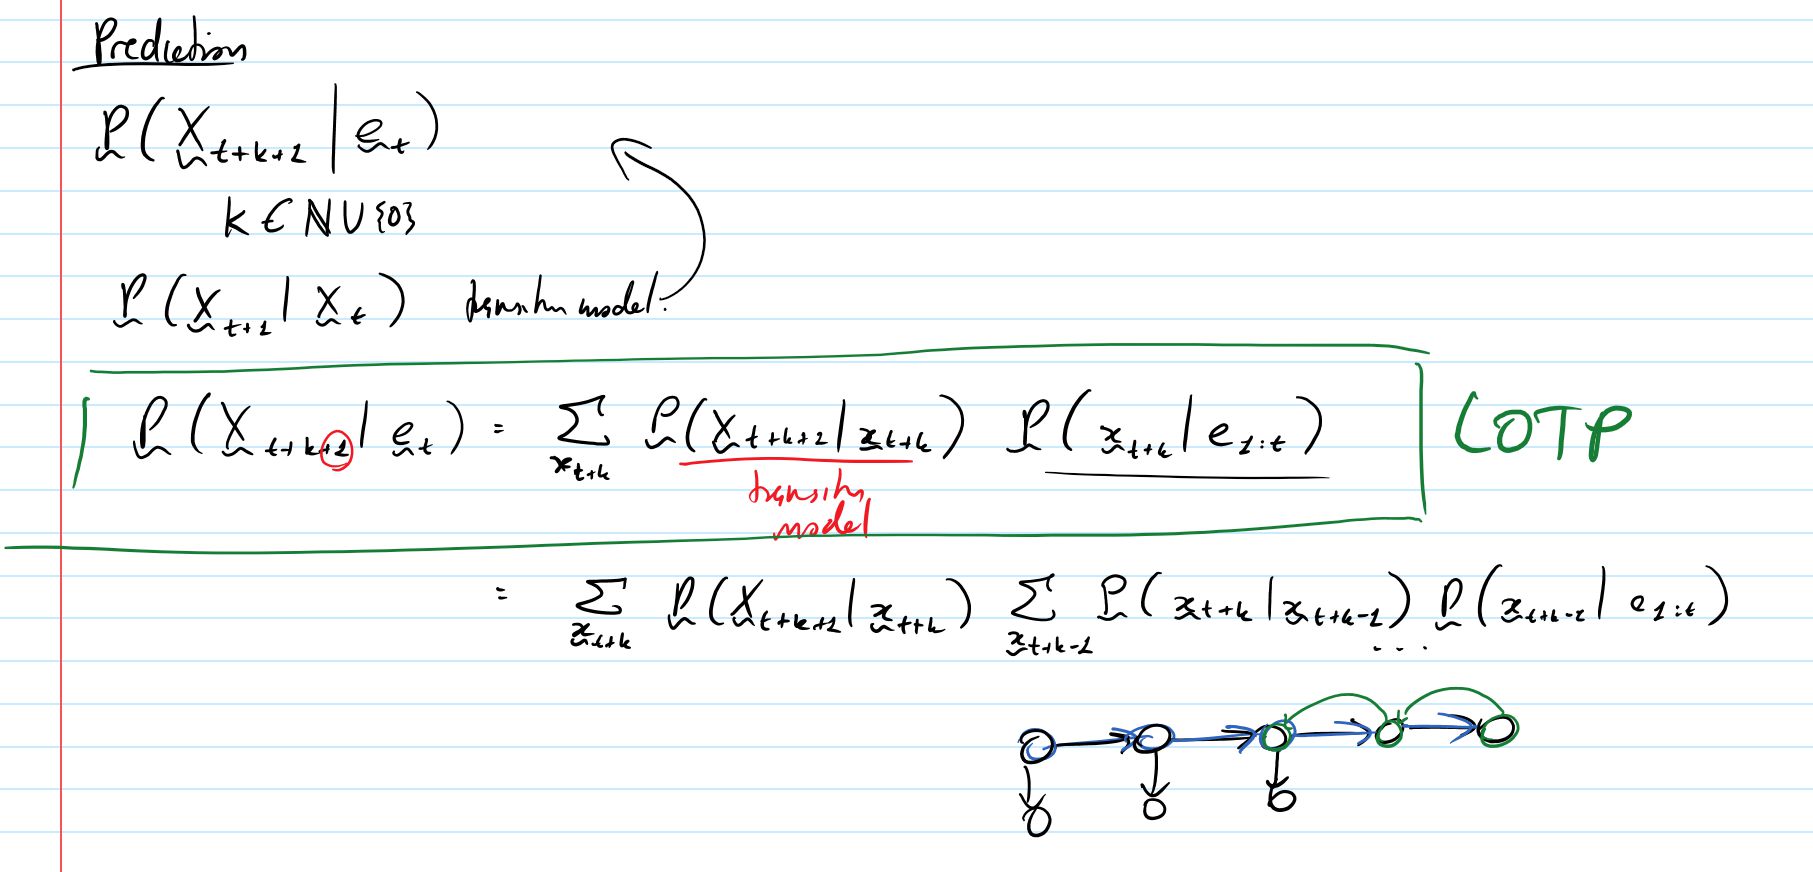 Prediction
P(X_{t+k+1} | e_t)
k ∈ ℕ ∪ {0}
P(X_{t+1} | X_t) transition model.
P(X_{t+k+1} | e_t) = Σ_{x_{t+k}} P(X_{t+k+1} | x_{t+k}) P(x_{t+k} | e_{1:t}) LOTP
transition
model
= Σ_{x_{t+k}} P(X_{t+k+1} | x_{t+k}) Σ_{x_{t+k-1}} P(x_{t+k} | x_{t+k-1}) P(x_{t+k-1} | e_{1:t})
...